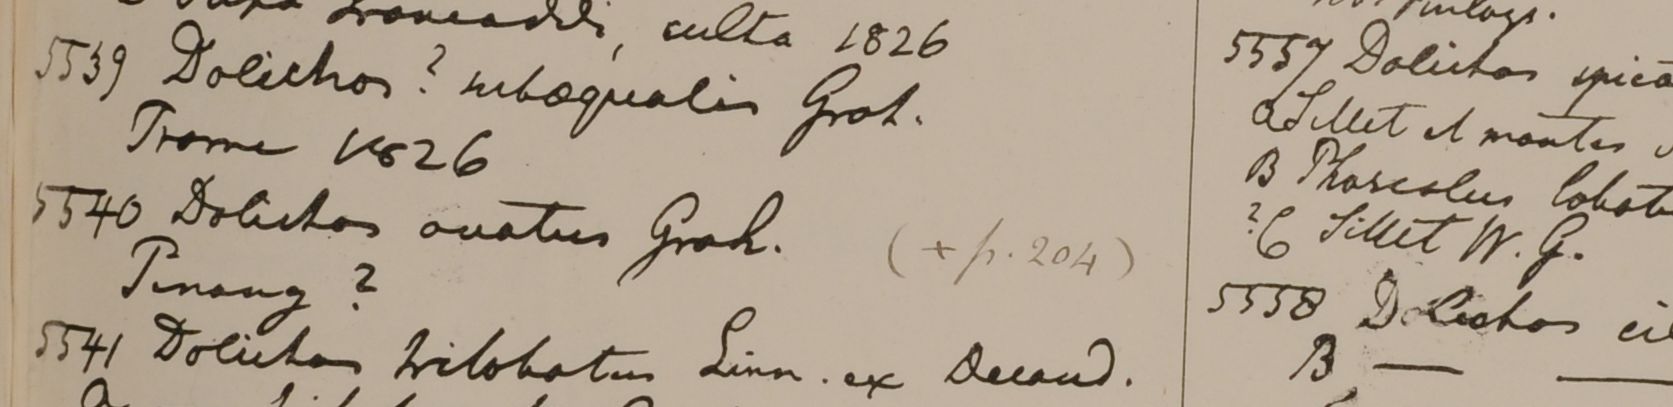 culta 1826
5539 Dolichos ? subaequalis Grah.
Prome 1826
5540 Dolichos ovatus Grah.
(+ p. 204)
Pinang ?
5541 Dolichos trilobatus Linn. ex Decand.
5557 Dolichos spica
a Sillet et montes
B Phaseolus lobatu
? C Sillet W. G.
5558 Dolichos cil
B — —